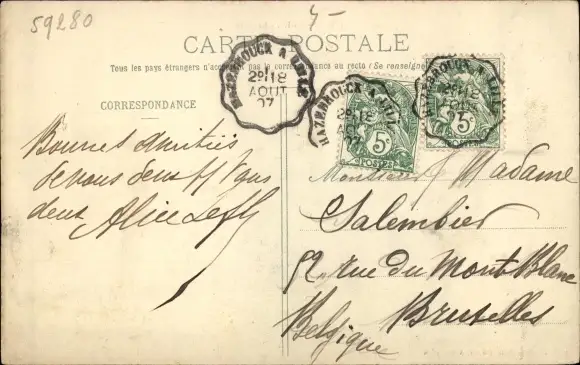 59280
5-
CARTE POSTALE
Tous les pays étrangers n'acceptent pas la correspondance au recto (Se renseigner
CORRESPONDANCE
HAZEBROUCK A LILLE
2º/18
AOUT
07
HAZEBROUCK A LILLE
2º/18
AOUT
07
5c
POSTES
HAZEBROUCK A LILLE
2º/18
AOUT
5c
Bonnes amitiés
de vous deux
deux Alice
Monsieur & Madame
Salembier
52 rue du Mont Blanc
Bruxelles
Belgique